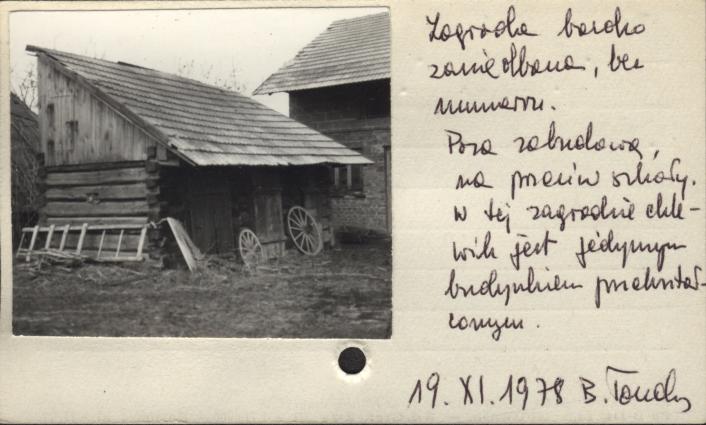 Zagroda bardzo
zaniedbana, bez
numeru.
Poza zabudową,
na przeciw szkoły.
w tej zagrodzie chle-
wik jest jedynym
budynkiem przekształ-
conym.
19. XI. 1978 B.